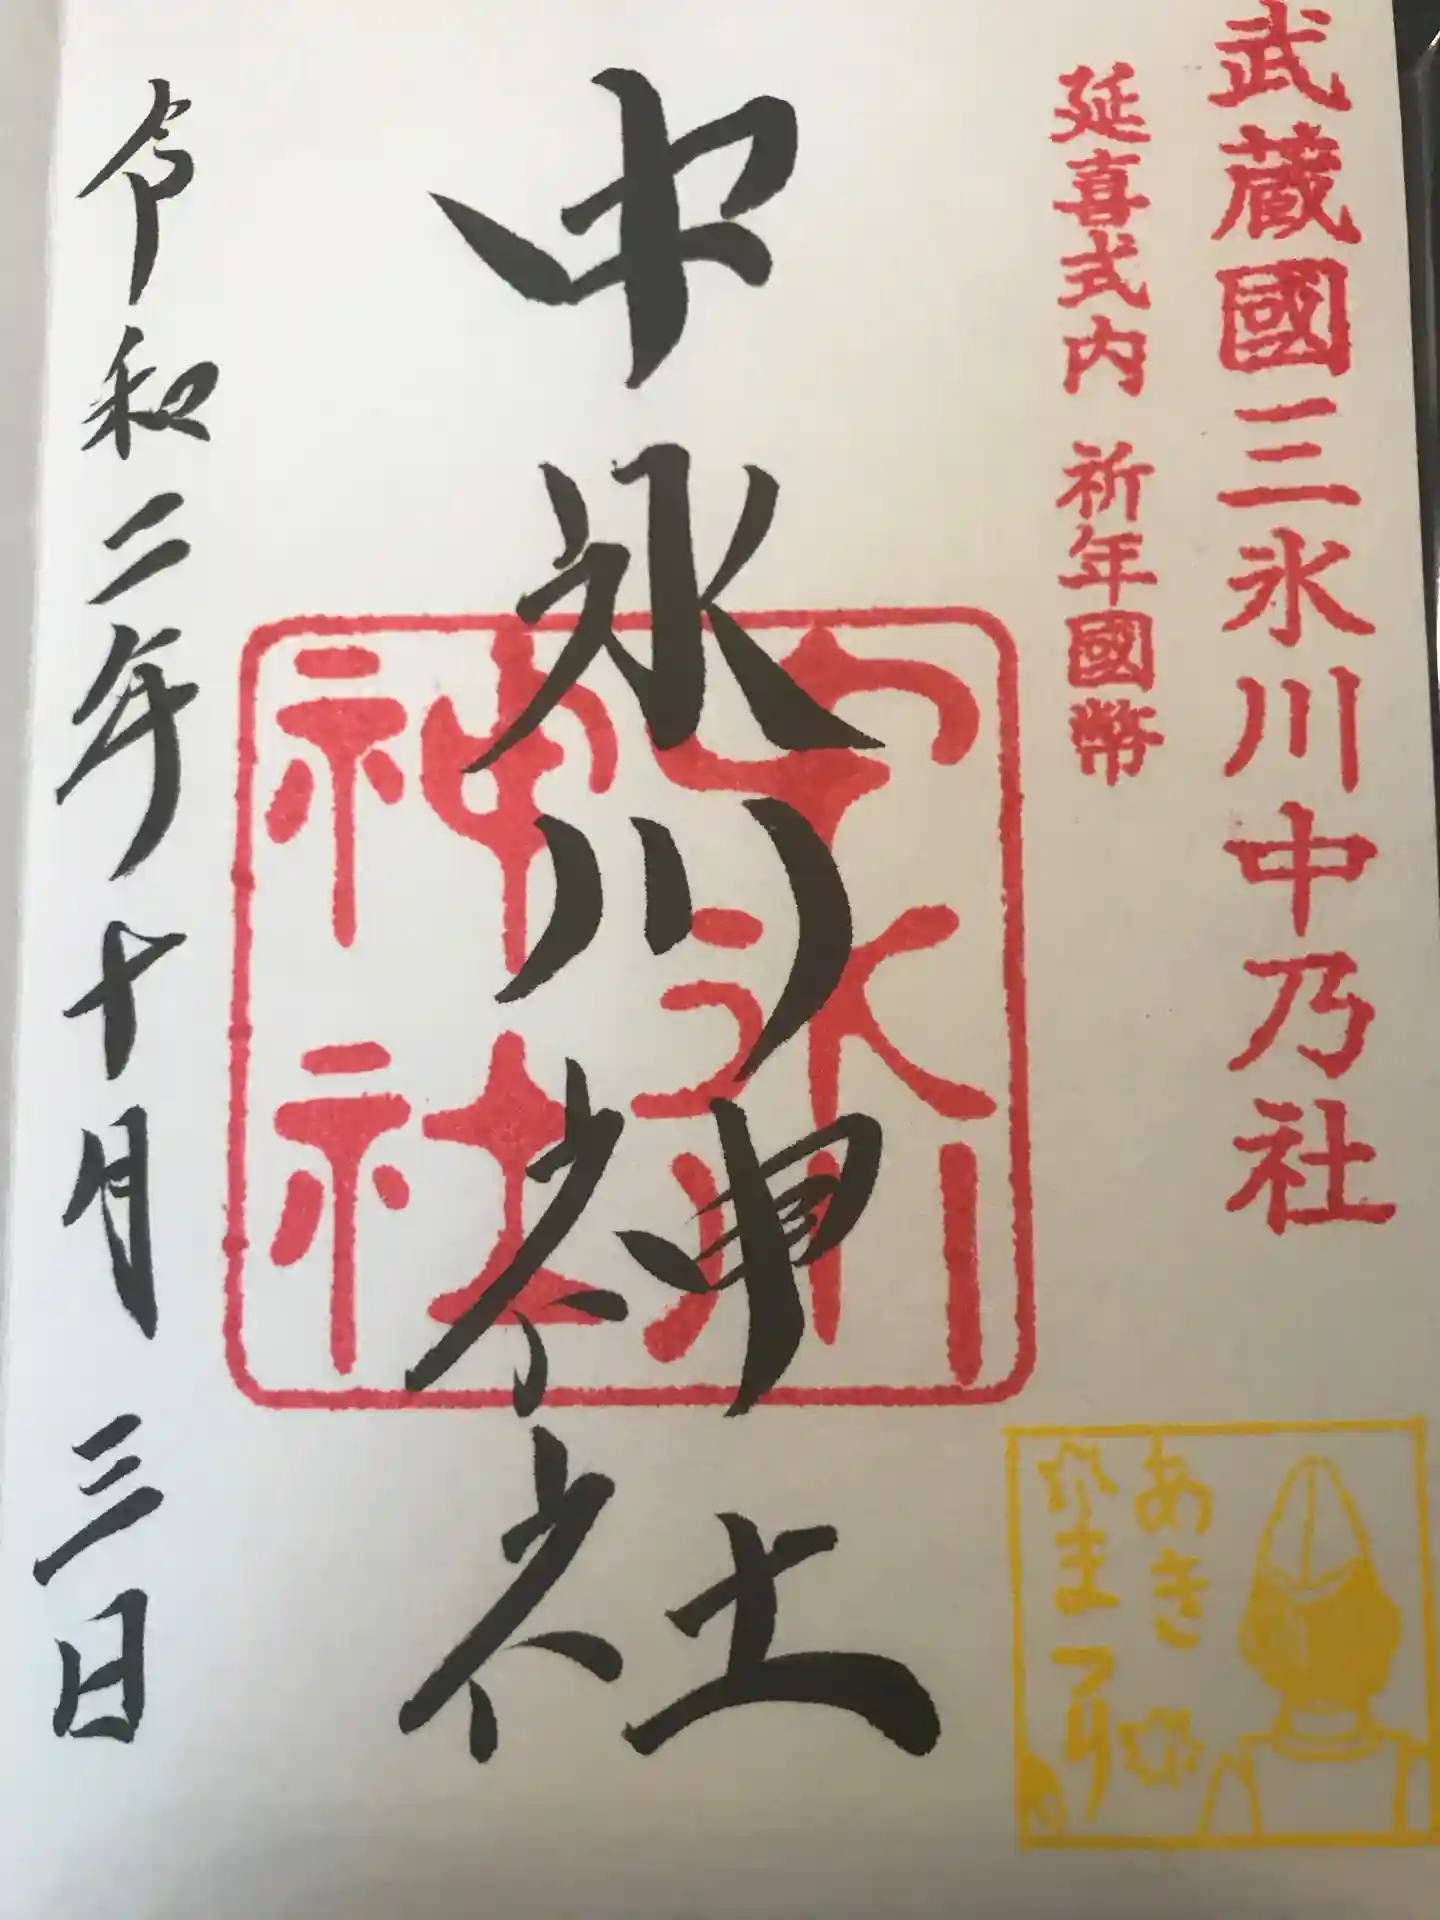 武蔵國三氷川中乃社
延喜式内 祈年國幣
中氷川神社
中氷川
神社
令和二年十月三日
あき
まつり